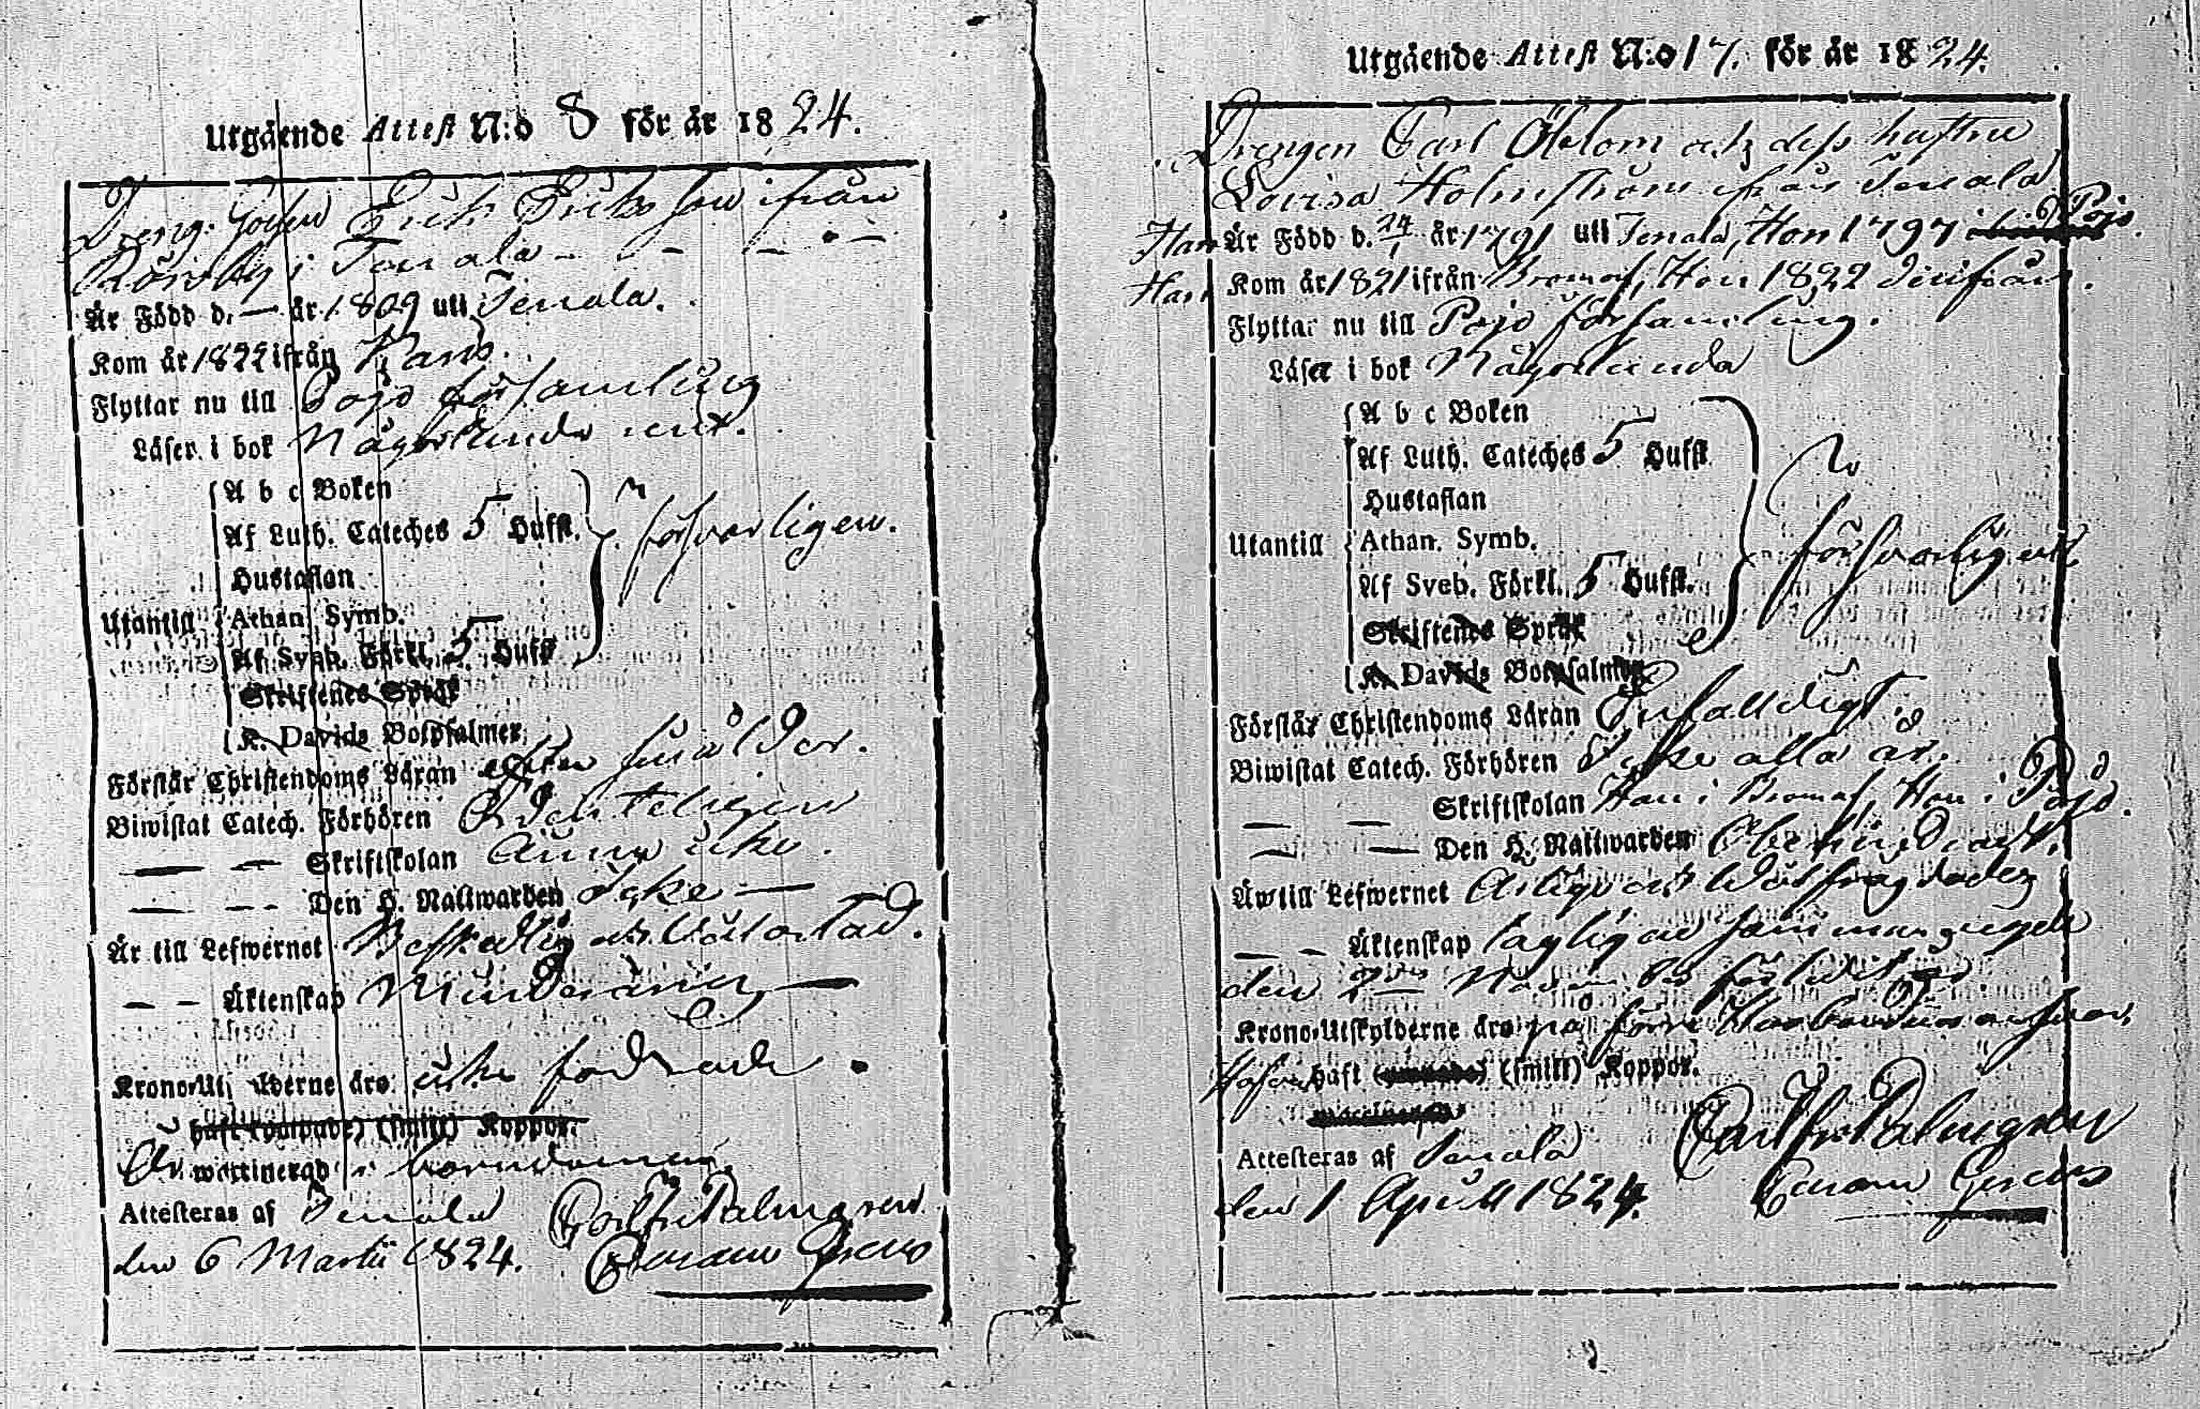 Utgående Attest N:o 8 för år 1824.
Dreng. Gossen Erik Eriksson ifrån
i Tenala
Är Född d. — år 1809 uti Tenala.
Kom år 1822 ifrån Karis.
Flyttar nu till Pojo församling
Läser i bok Någorlunda
A b c Boken
Af Luth. Cateches 5 Hufst.
försvarligen.
Hustaflan
Utantill Athan. Symb.
Af Sveb. Förkl. 5 Hufst.
Skriftenes Språk
K. Davids Botpsalmer
Förstår Christendoms Läran efter sin ålder.
Biwistat Catech. Förhören Ordenteligen
— — Skriftskolan Ännu icke.
— — Den H. Nattwarden Icke —
Är till Lefwernet Beskedlig och
— — Äktenskap Minderårig —
Krono-Utskylderne äro icke fodrade.
haft (ympade) (smitt) Koppor.
Är waccinerad i barndomen.
Attesteras af Tenala Carl Fr. Palmgren
den 6 Martii 1824.
Utgående Attest N:o 17. för år 1824.
Drengen Carl och dess hustru
Lovisa Holmström ifrån Tenala
Han Är Född d. 24/1 år 1791 uti Tenala, Hon 1797 i Pojo.
Han Kom år 1821 ifrån Bromarf, Hon 1822
Flyttar nu till Pojo församling.
Läser i bok Någorlunda
A b c Boken
Af Luth. Cateches 5 Hufst.
Hustaflan
Utantill Athan. Symb.
försvarligen
Af Sveb. Förkl. 5 Hufst.
Skriftenes Språk
K. Davids Botpsalmer
Förstår Christendoms Läran Enfalldigt.
Biwistat Catech. Förhören Icke alla år.
— — Skriftskolan Han i Bromarf, Hon i Pojo.
— — Den H. Nattwarden Obehindradt.
Är till Lefwernet Ärlige och Välfrägdade
— — Äktenskap lagligen sammanvigde
den 2dra
Krono-Utskylderne äro på förra
Hafva haft (smitt) Koppor.
Attesteras af Tenala Carl Fr. Palmgren
den 1 April 1824.